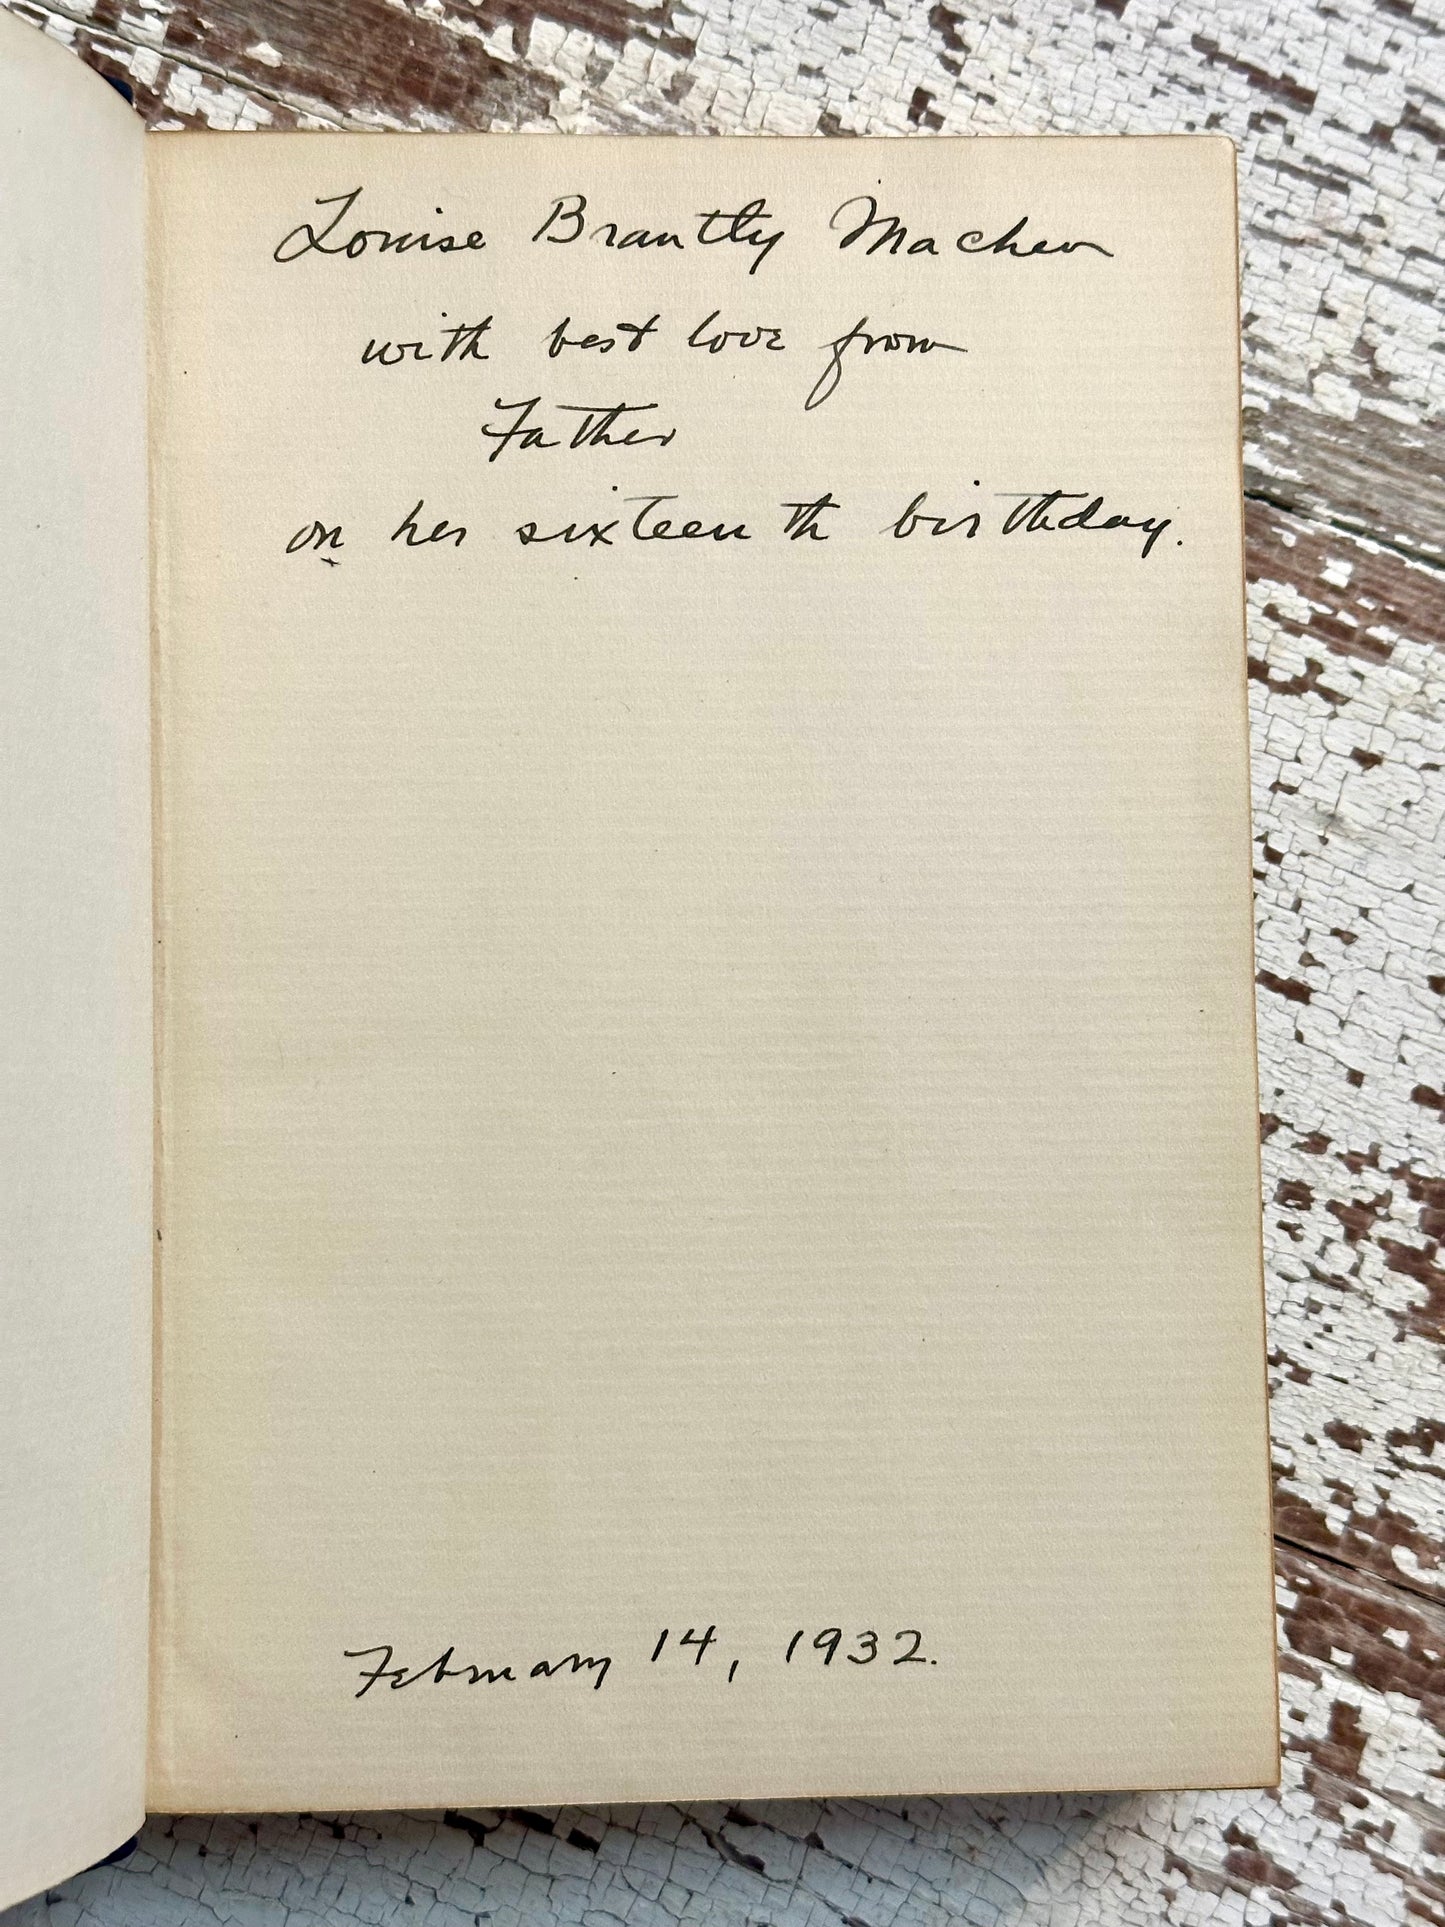 Louise Brantly Machen
with best love from
Father
on her sixteenth birthday.
February 14, 1932.